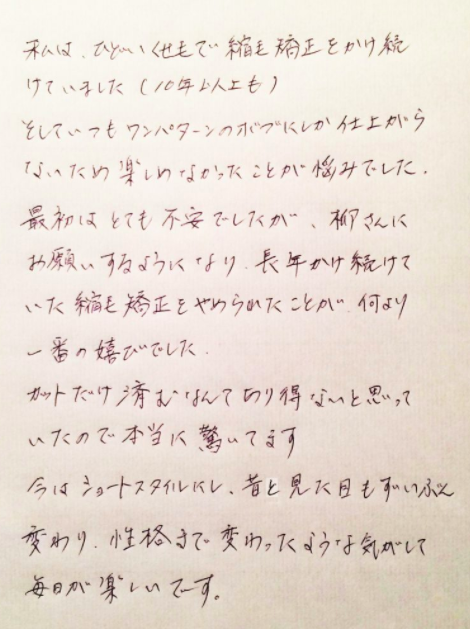 私は、ひどいくせ毛で縮毛矯正をかけ続
けていました（10年以上も）
そしていつもワンパターンのボブにしか仕上がら
ないため楽しめなかったことが悩みでした。
最初はとても不安でしたが、柳さんに
お願いするようになり、長年かけ続けて
いた縮毛矯正をやめられたことが、何より
一番の嬉びでした。
カットだけ済むなんてあり得ないと思って
いたので本当に驚いてます
今はショートスタイルにし、昔と見た目もずいぶん
変わり、性格まで変わったような気がして
毎日が楽しいです。